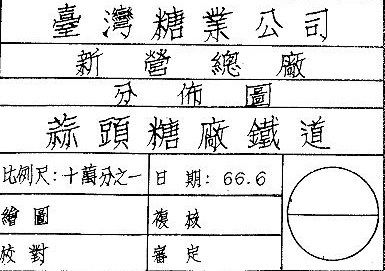 臺灣糖業公司
新營總廠
分佈圖
蒜頭糖廠鐵道
比例尺:十萬分之一 日期:66.6
繪圖 複核
校對 審定